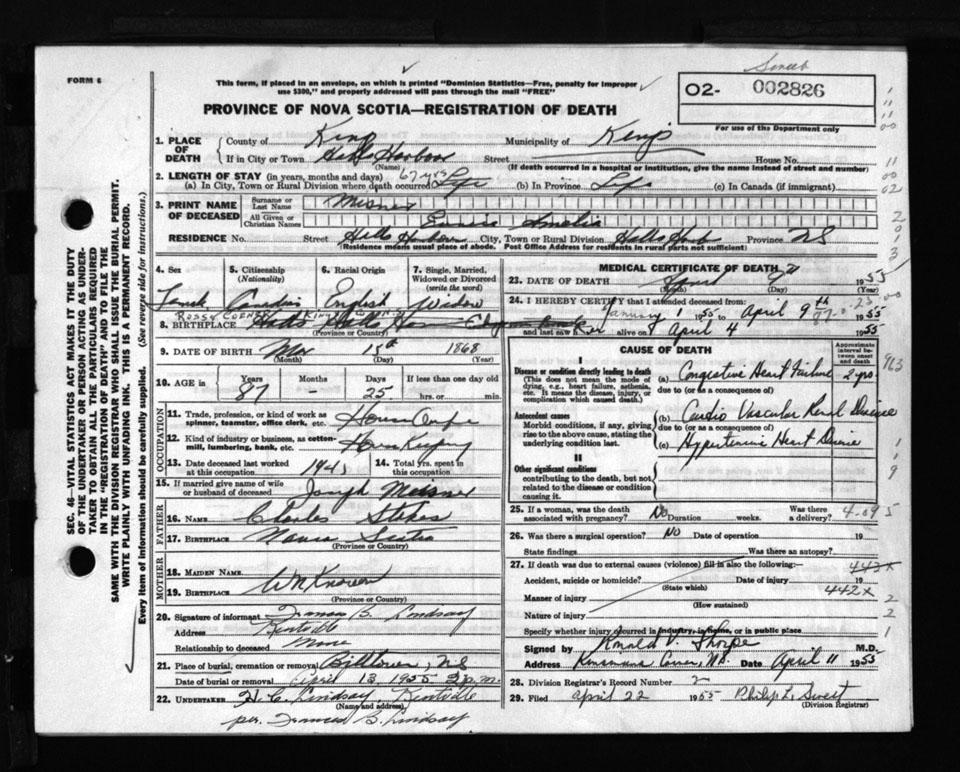 FORM 6
This form, if placed in an envelope, on which is printed "Dominion Statistics—Free, penalty for improper
use $300," and properly addressed will pass through the mail "FREE"
Sweet
O2- 002826
PROVINCE OF NOVA SCOTIA—REGISTRATION OF DEATH
For use of the Department only
1. PLACE OF DEATH
County of Kings Municipality of Kings
If in City or Town Halls Harbour Street House No.
(Name) (If death occurred in a hospital or institution, give the name instead of street and number)
2. LENGTH OF STAY (in years, months and days) 67 yrs
(a) In City, Town or Rural Division where death occurred Life (b) In Province Life (c) In Canada (if immigrant)
3. PRINT NAME OF DECEASED
Surname or Last Name Misner
All Given or Christian Names Amelia
RESIDENCE No. Street Halls Harbour City, Town or Rural Division Halls Harb Province NS
(Residence means usual place of abode. Post Office Address for residents in rural parts not sufficient)
4. Sex
Female
5. Citizenship (Nationality)
Canadian
6. Racial Origin
English
7. Single, Married, Widowed or Divorced (write the word)
Widow
8. BIRTHPLACE
9. DATE OF BIRTH Mar 15th 1868
(Month) (Day) (Year)
10. AGE in Years Months Days If less than one day old
87 25 hrs. or min.
OCCUPATION
11. Trade, profession, or kind of work as
spinner, teamster, office clerk, etc. House Wife
12. Kind of industry or business, as cotton-
mill, lumbering, bank, etc. House Keeping
13. Date deceased last worked
at this occupation 1945
14. Total yrs. spent in
this occupation
15. If married give name of wife
or husband of deceased Joseph Meisner
FATHER
16. NAME Charles Stokes
17. BIRTHPLACE Nova Scotia
(Province or Country)
MOTHER
18. MAIDEN NAME
19. BIRTHPLACE Unknown
(Province or Country)
20. Signature of informant Frances B. Lindsay
Address Kentville
Relationship to deceased None
21. Place of burial, cremation or removal Billtown, NS
Date of burial or removal April 13, 1955 2 p.m.
22. UNDERTAKER H. C. Lindsay Kentville
(Name and address)
per. Frances B. Lindsay
MEDICAL CERTIFICATE OF DEATH
23. DATE OF DEATH April 9 1955
(Month) (Day)
24. I HEREBY CERTIFY that I attended deceased from
January 1 1955 to April 9th 1955
and last saw her alive on April 4 1955
CAUSE OF DEATH
Approximate interval between onset and death
I
Disease or condition directly leading to death
(This does not mean the mode of dying, e.g., heart failure, asthenia, etc. It means the disease, injury, or complication which caused death.)
(a) Congestive Heart Failure 2 yrs.
due to (or as a consequence of)
Antecedent causes
Morbid conditions, if any, giving rise to the above cause, stating the underlying condition last.
(b) Cardio Vascular Renal Disease
due to (or as a consequence of)
(c) Hypertensive Heart Disease
II
Other significant conditions
contributing to the death, but not related to the disease or condition causing it.
25. If a woman, was the death
associated with pregnancy? No Duration weeks. Was there a delivery?
26. Was there a surgical operation? No Date of operation 19
State findings Was there an autopsy?
27. If death was due to external causes (violence) fill in also the following:—
Accident, suicide or homicide? Date of injury 19
(State which)
Manner of injury 442x
(How sustained)
Nature of injury
Specify whether injury occurred in industry, in home, or in public place
Signed by Ronald V. Thorpe M.D.
Address Kinsmans Corner, N.S. Date April 11 1955
28. Division Registrar's Record Number 2
29. Filed April 22 1955 Philip L. Sweet
(Division Registrar)
SEC. 46—VITAL STATISTICS ACT MAKES IT THE DUTY
OF THE UNDERTAKER OR PERSON ACTING AS UNDER-
TAKER TO OBTAIN ALL THE PARTICULARS REQUIRED
IN THE "REGISTRATION OF DEATH" AND TO FILE THE
SAME WITH THE DIVISION REGISTRAR WHO SHALL ISSUE THE BURIAL PERMIT.
WRITE PLAINLY WITH UNFADING INK. THIS IS A PERMANENT RECORD.
Every item of information should be carefully supplied. (See reverse side for instructions.)